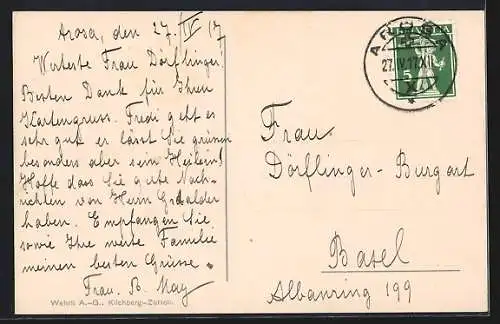 Arosa, den 27. IV 17
Werteste Frau Dörflinger!
Besten Dank für Ihren
Kartengruss. Fredi geht es
sehr gut er lässt Sie grüssen
besonders aber sein Heilein!
Hoffe dass Sie gute Nach-
richten von Herrn
haben. Empfangen Sie
sowie Ihre werte Familie
meinen besten Grüsse.
Frau. B. May
Wehrli A.-G., Kilchberg-Zürich.
AROSA
27.IV.17.XII
HELVETIA
5
Frau
Dörflinger-Burgart
Basel
Albanring 199